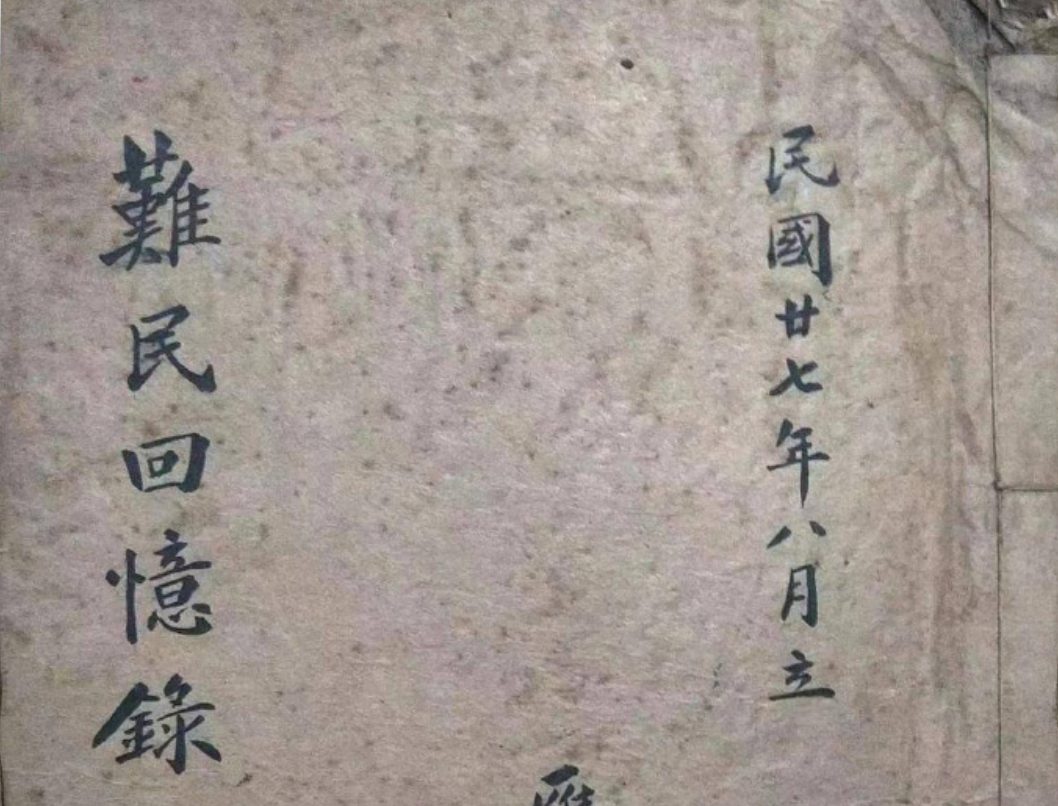 民國廿七年八月立
難民回憶錄